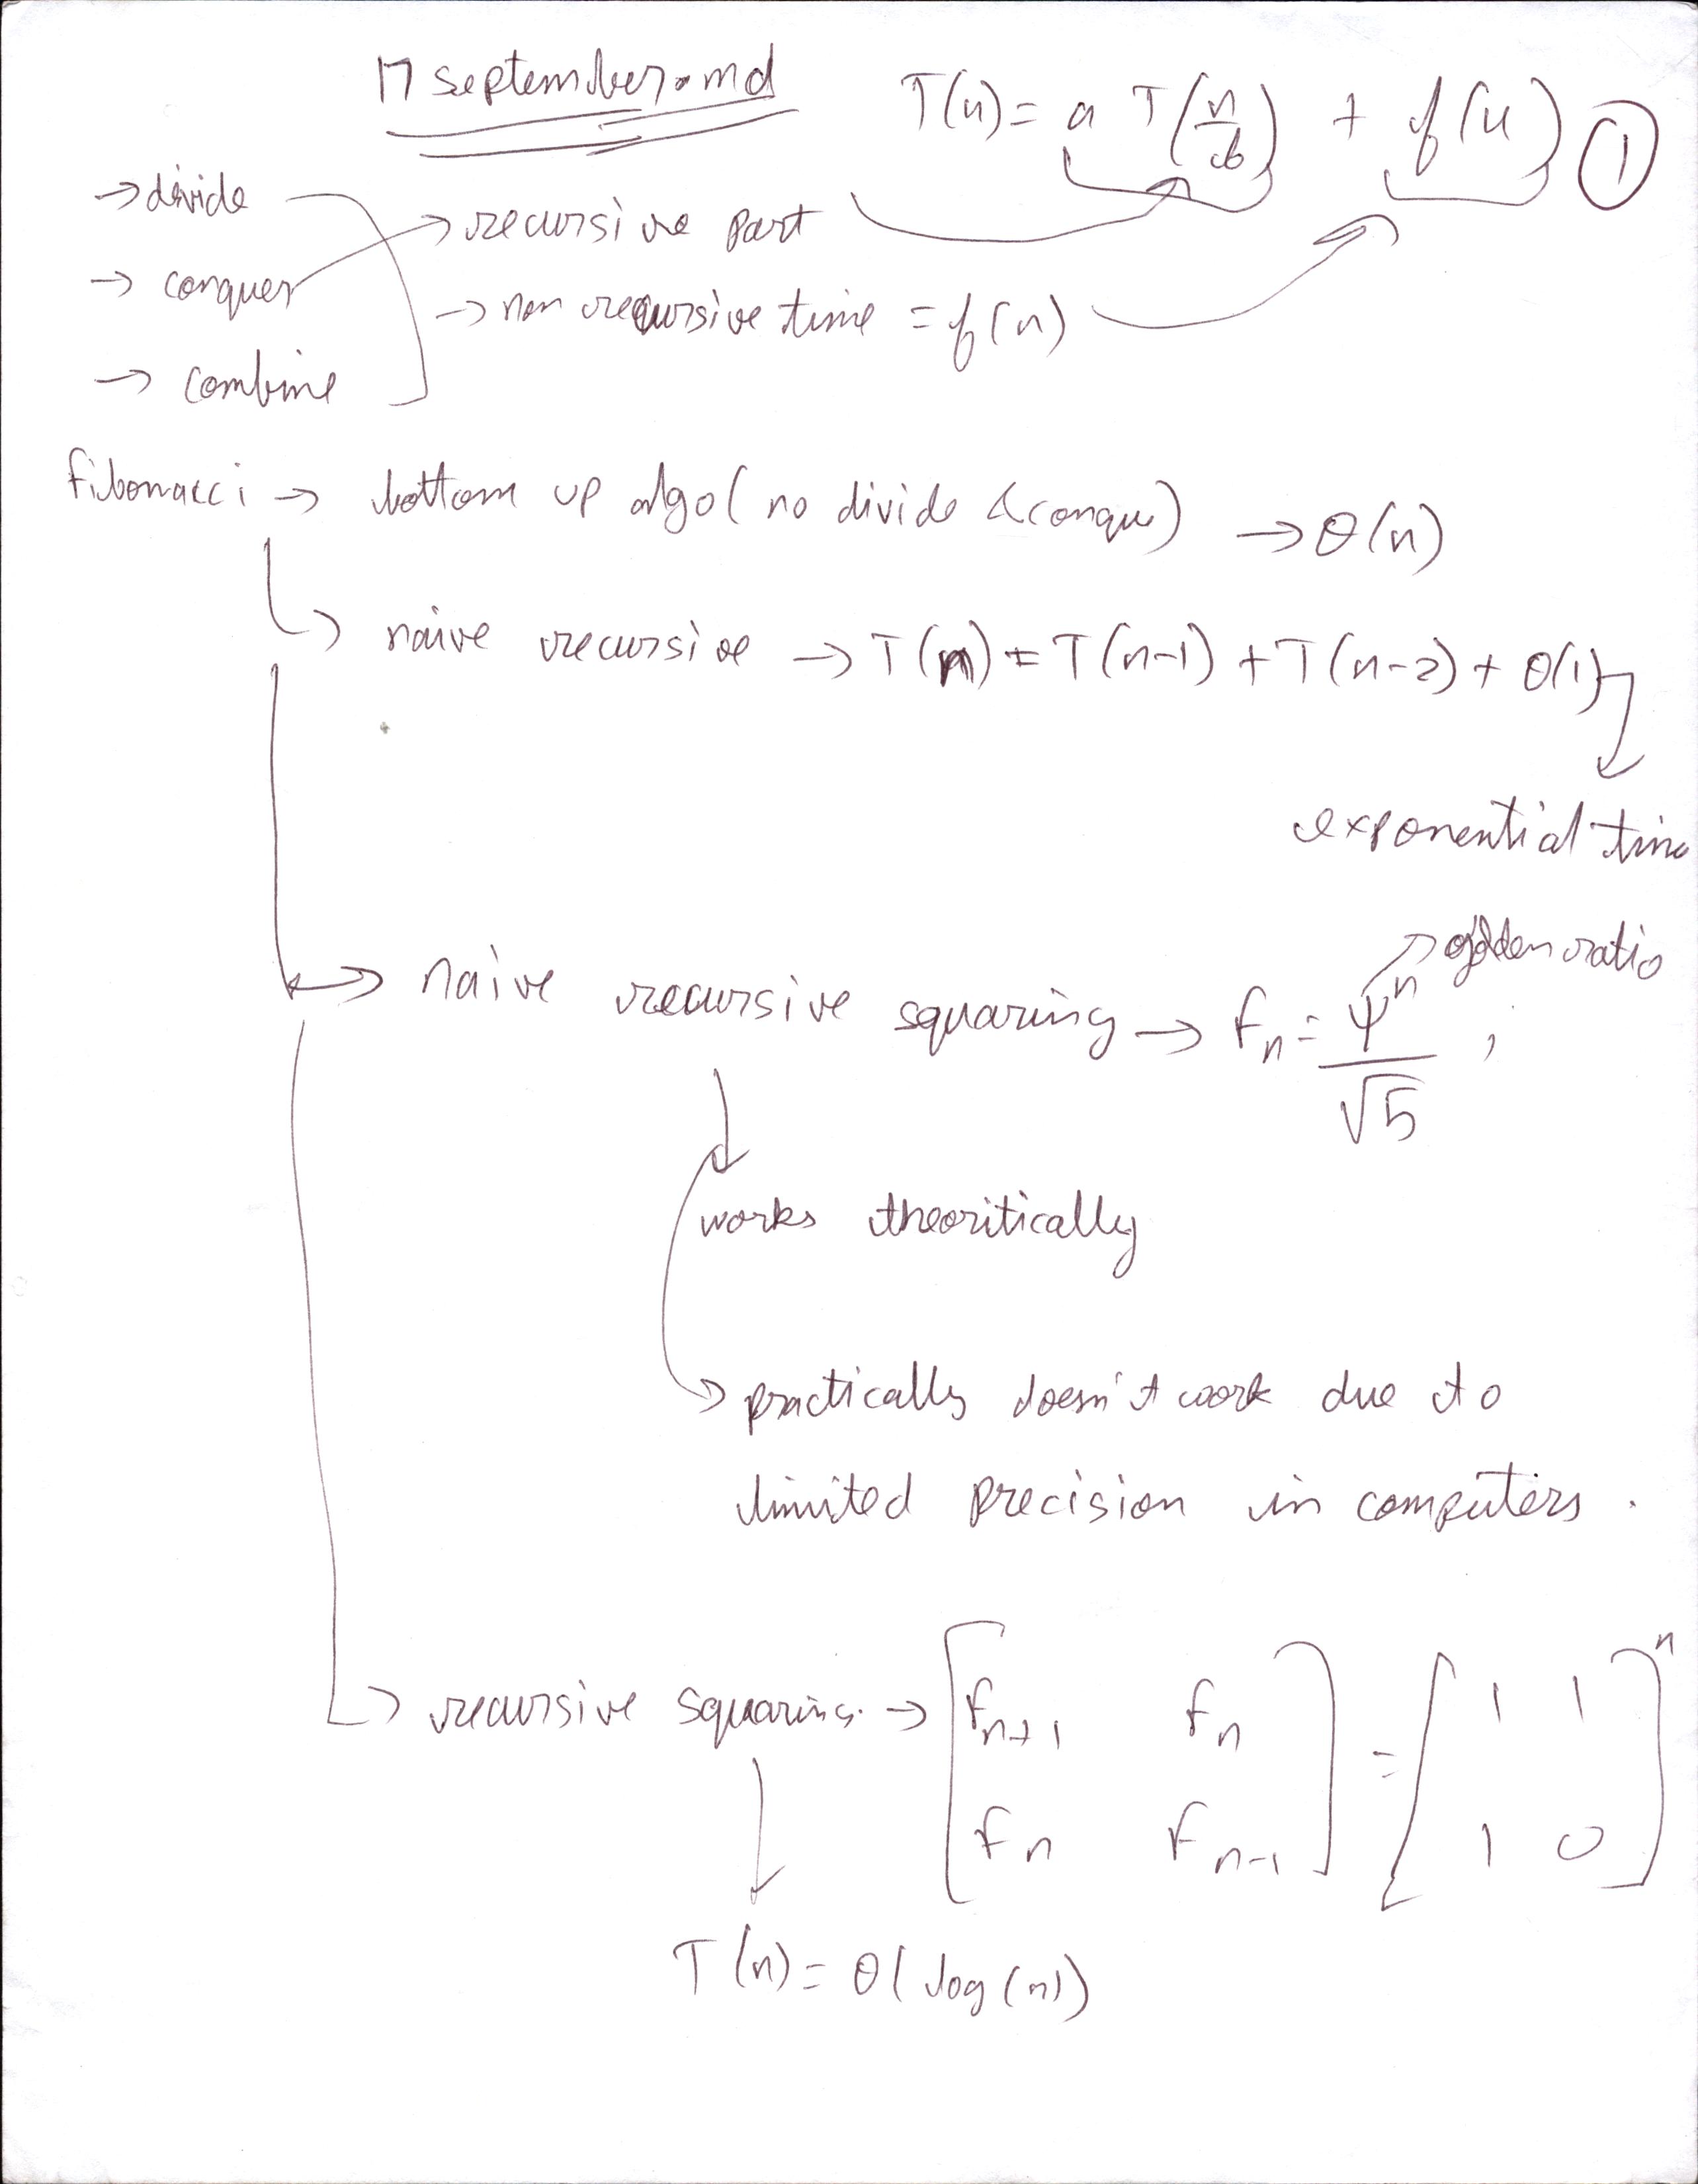 17 september.md
T(n) = a T(n/b) + f(n) ①
→ divide
→ recursive part
→ conquer
→ non recursive time = f(n)
→ combine
fibonacci → bottom up algo ( no divide & conque) → θ(n)
↳ naive recursive → T(n) = T(n-1) + T(n-2) + θ(1)
exponential time
→ golden ratio
↳ naive recursive squaring → Fn = ψ^n / √5 ,
works theoritically
→ practically doesn't work due to
limited precision in computers .
↳ recursive squaring. → [Fn+1 Fn
Fn Fn-1] = [1 1
1 0]^n
T(n) = θ( log(n))